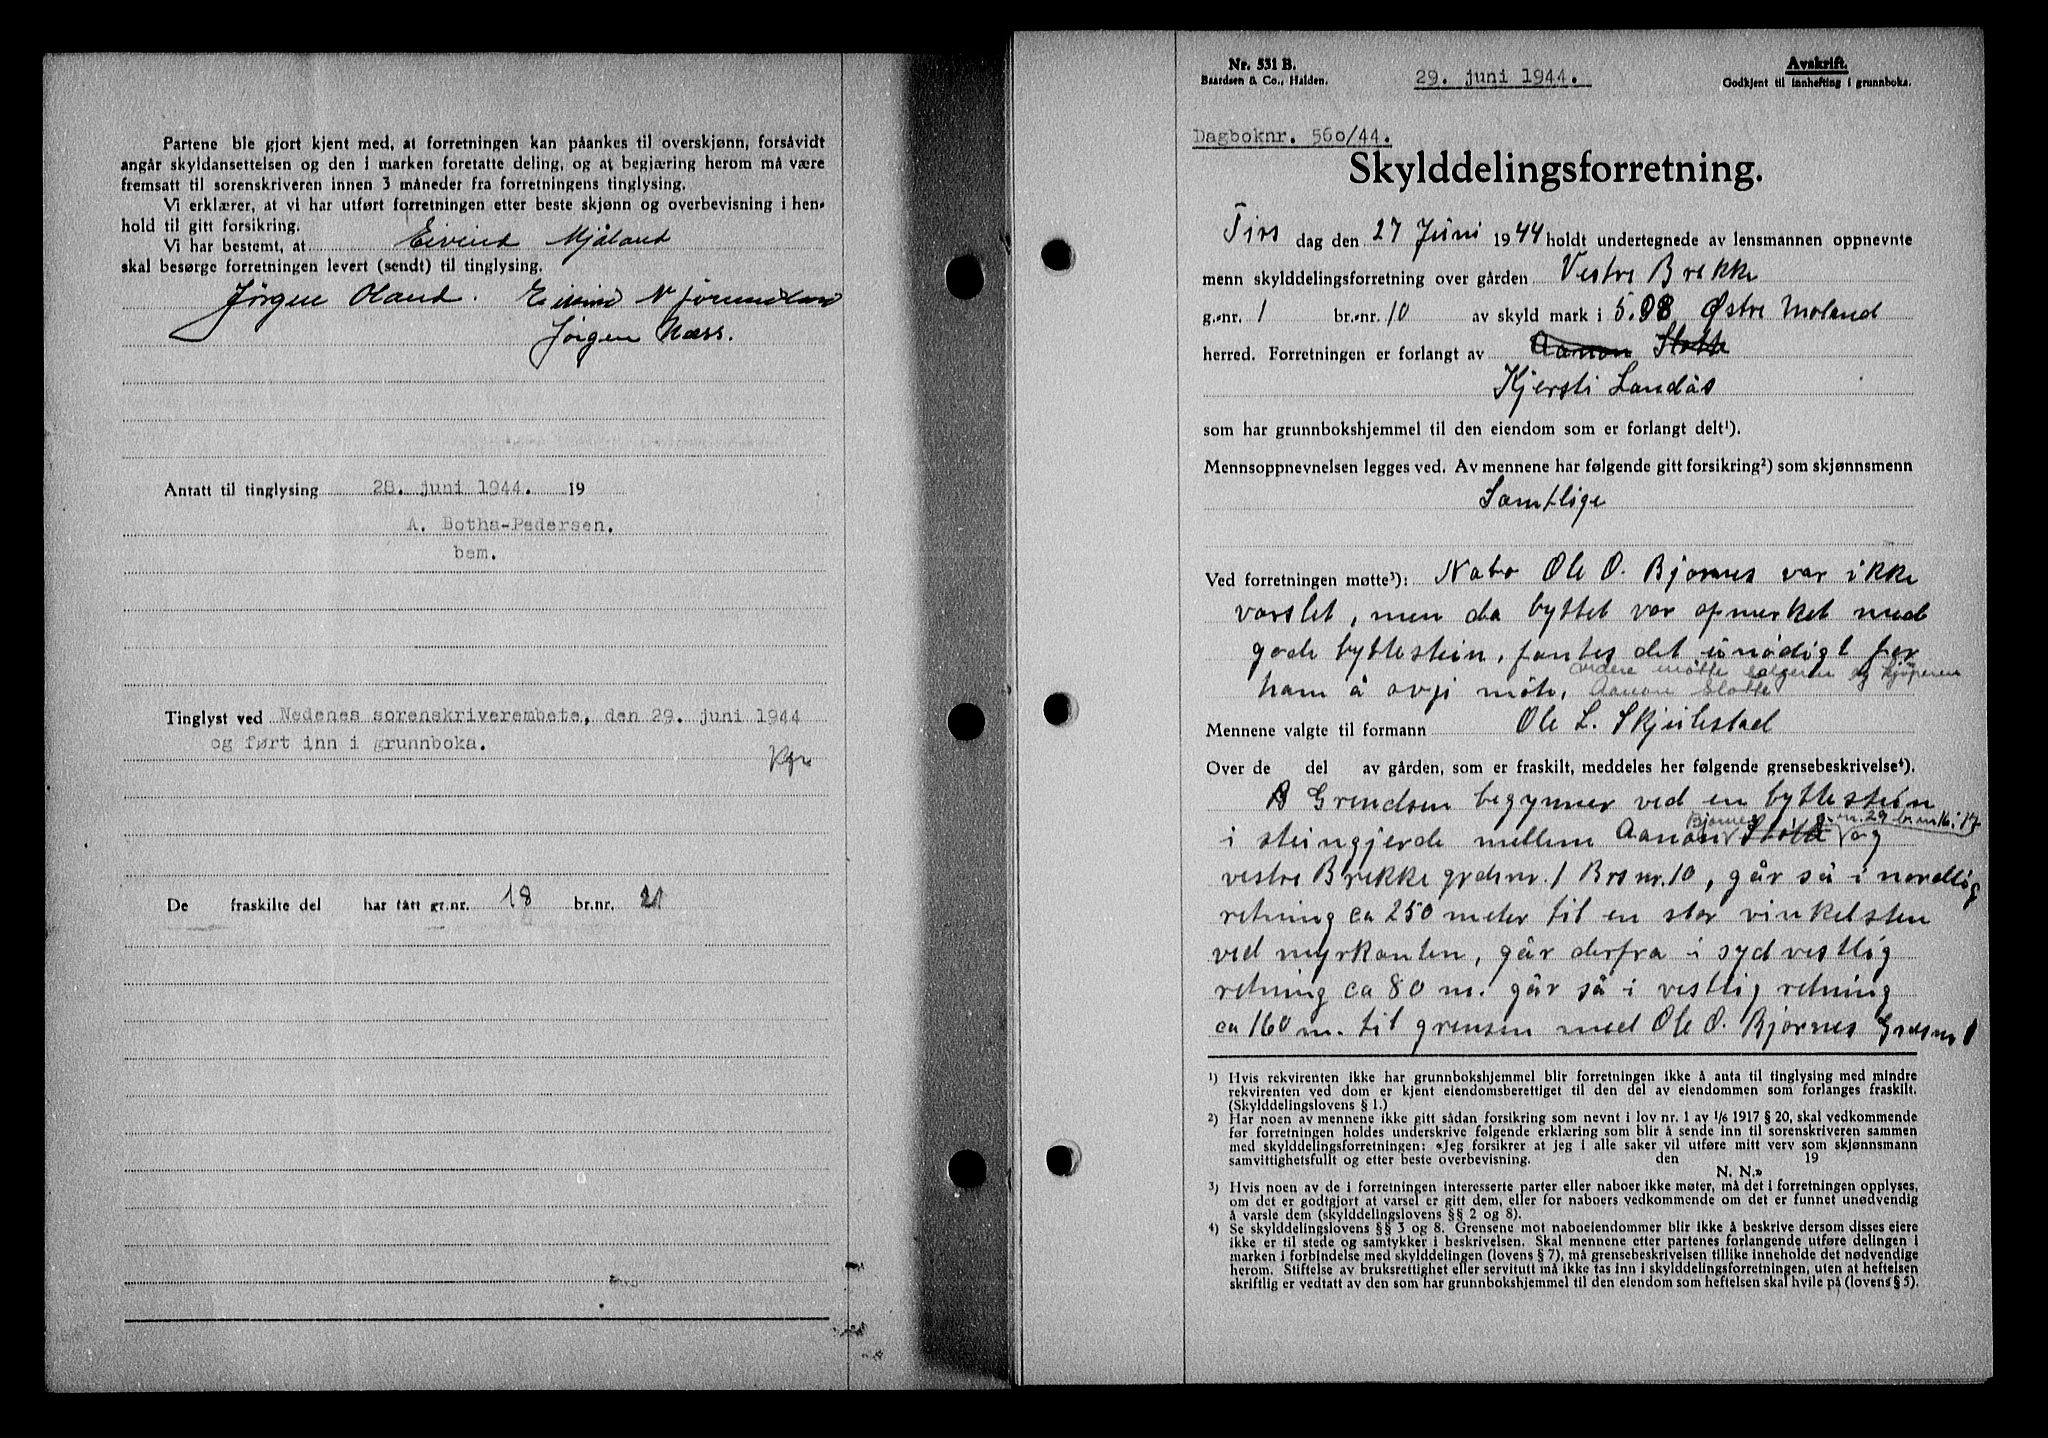 Partene ble gjort kjent med, at forretningen kan påankes til overskjønn, forsåvidt
angår skyldansettelsen og den i marken foretatte deling, og at begjæring herom må være
fremsatt til sorenskriveren innen 3 måneder fra forretningens tinglysing.
Vi erklærer, at vi har utført forretningen etter beste skjønn og overbevisning i hen-
hold til gitt forsikring.
Vi har bestemt, at Eivind Mjåland
skal besørge forretningen levert (sendt) til tinglysing.
Jörgen Oland. Eivind N Jörundland
Jörgen Næss.
Antatt til tinglysing 28. juni 1944. 19
A. Botha-Pedersen.
bem.
Tinglyst ved Nedenes sorenskriverembete, den 29. juni 1944
og ført inn i grunnboka.
De fraskilte del har fått gr.nr. 18 br.nr. 21
Nr. 531 B.
Baardsen & Co., Halden.
29. juni 1944.
Avskrift.
Godkjent til innhefting i grunnboka.
Dagboknr. 560/44.
Skylddelingsforretning.
Tirs dag den 27 Juni 1944 holdt undertegnede av lensmannen oppnevnte
menn skylddelingsforretning over gården Vestre Brekke
g.-nr. 1 br.-nr. 10 av skyld mark i 5.98 Østre Moland
herred. Forretningen er forlangt av Aanon Slotte
Kjersti Landås
som har grunnbokshjemmel til den eiendom som er forlangt delt¹).
Mennsoppnevnelsen legges ved. Av mennene har følgende gitt forsikring²) som skjønnsmenn
Samtlige
Ved forretningen møtte³): Nabo Ole O. Bjornes var ikke
varslet, men da byttet var opmerket med
gode byttestein, fantes det unödigt for
ham å avgi möte, videre møtte selgeren og kjøperen
Aanon Slotte
Mennene valgte til formann Ole L. Skjulestad
Over de del av gården, som er fraskilt, meddeles her følgende grensebeskrivelse⁴).
Grendsen begynner ved en byttestein
i steingjerde mellem Aanon Slotte Bjornes g.nr. 29 br.nr 16 i 17 og
vestre Brekke grdsnr. 1 Brs nr. 10, går så i nordlig
retning ca 250 meter til en stor vinkelsten
ved myrkanten, går derfra i sydvestlig
retning ca 80 m. går så i vestlig retning
ca 160 m. til grensen med Ole O. Bjornes Grdsnr 1
¹) Hvis rekvirenten ikke har grunnbokshjemmel blir forretningen ikke å anta til tinglysing med mindre
rekvirenten ved dom er kjent eiendomsberettiget til den del av eiendommen som forlanges fraskilt.
(Skylddelingslovens § 1.)
²) Har noen av mennene ikke gitt sådan forsikring som nevnt i lov nr. 1 av 1/6 1917 § 20, skal vedkommende
før forretningen holdes underskrive følgende erklæring som blir å sende inn til sorenskriveren sammen
med skylddelingsforretningen: «Jeg forsikrer at jeg i alle saker vil utføre mitt verv som skjønnsmann
samvittighetsfullt og etter beste overbevisning. den 19
N. N.»
³) Hvis noen av de i forretningen interesserte parter eller naboer ikke møter, må det i forretningen opplyses,
om det er godtgjort at varsel er gitt dem, eller for naboers vedkommende om det er funnet unødvendig
å varsle dem (skylddelingslovens §§ 2 og 8).
⁴) Se skylddelingslovens §§ 3 og 8. Grensene mot naboeiendommer blir ikke å beskrive dersom disses eiere
ikke er til stede og samtykker i beskrivelsen. Skal mennene etter partenes forlangende utføre delingen i
marken i forbindelse med skylddelingen (lovens § 7), må grensebeskrivelsen tillike inneholde det nødvendige
herom. Stiftelse av bruksrettighet eller servitutt må ikke tas inn i skylddelingsforretningen, uten at heftelsen
skriftlig er vedtatt av den som har grunnbokshjemmel til den eiendom som heftelsen skal hvile på (lovens § 5).